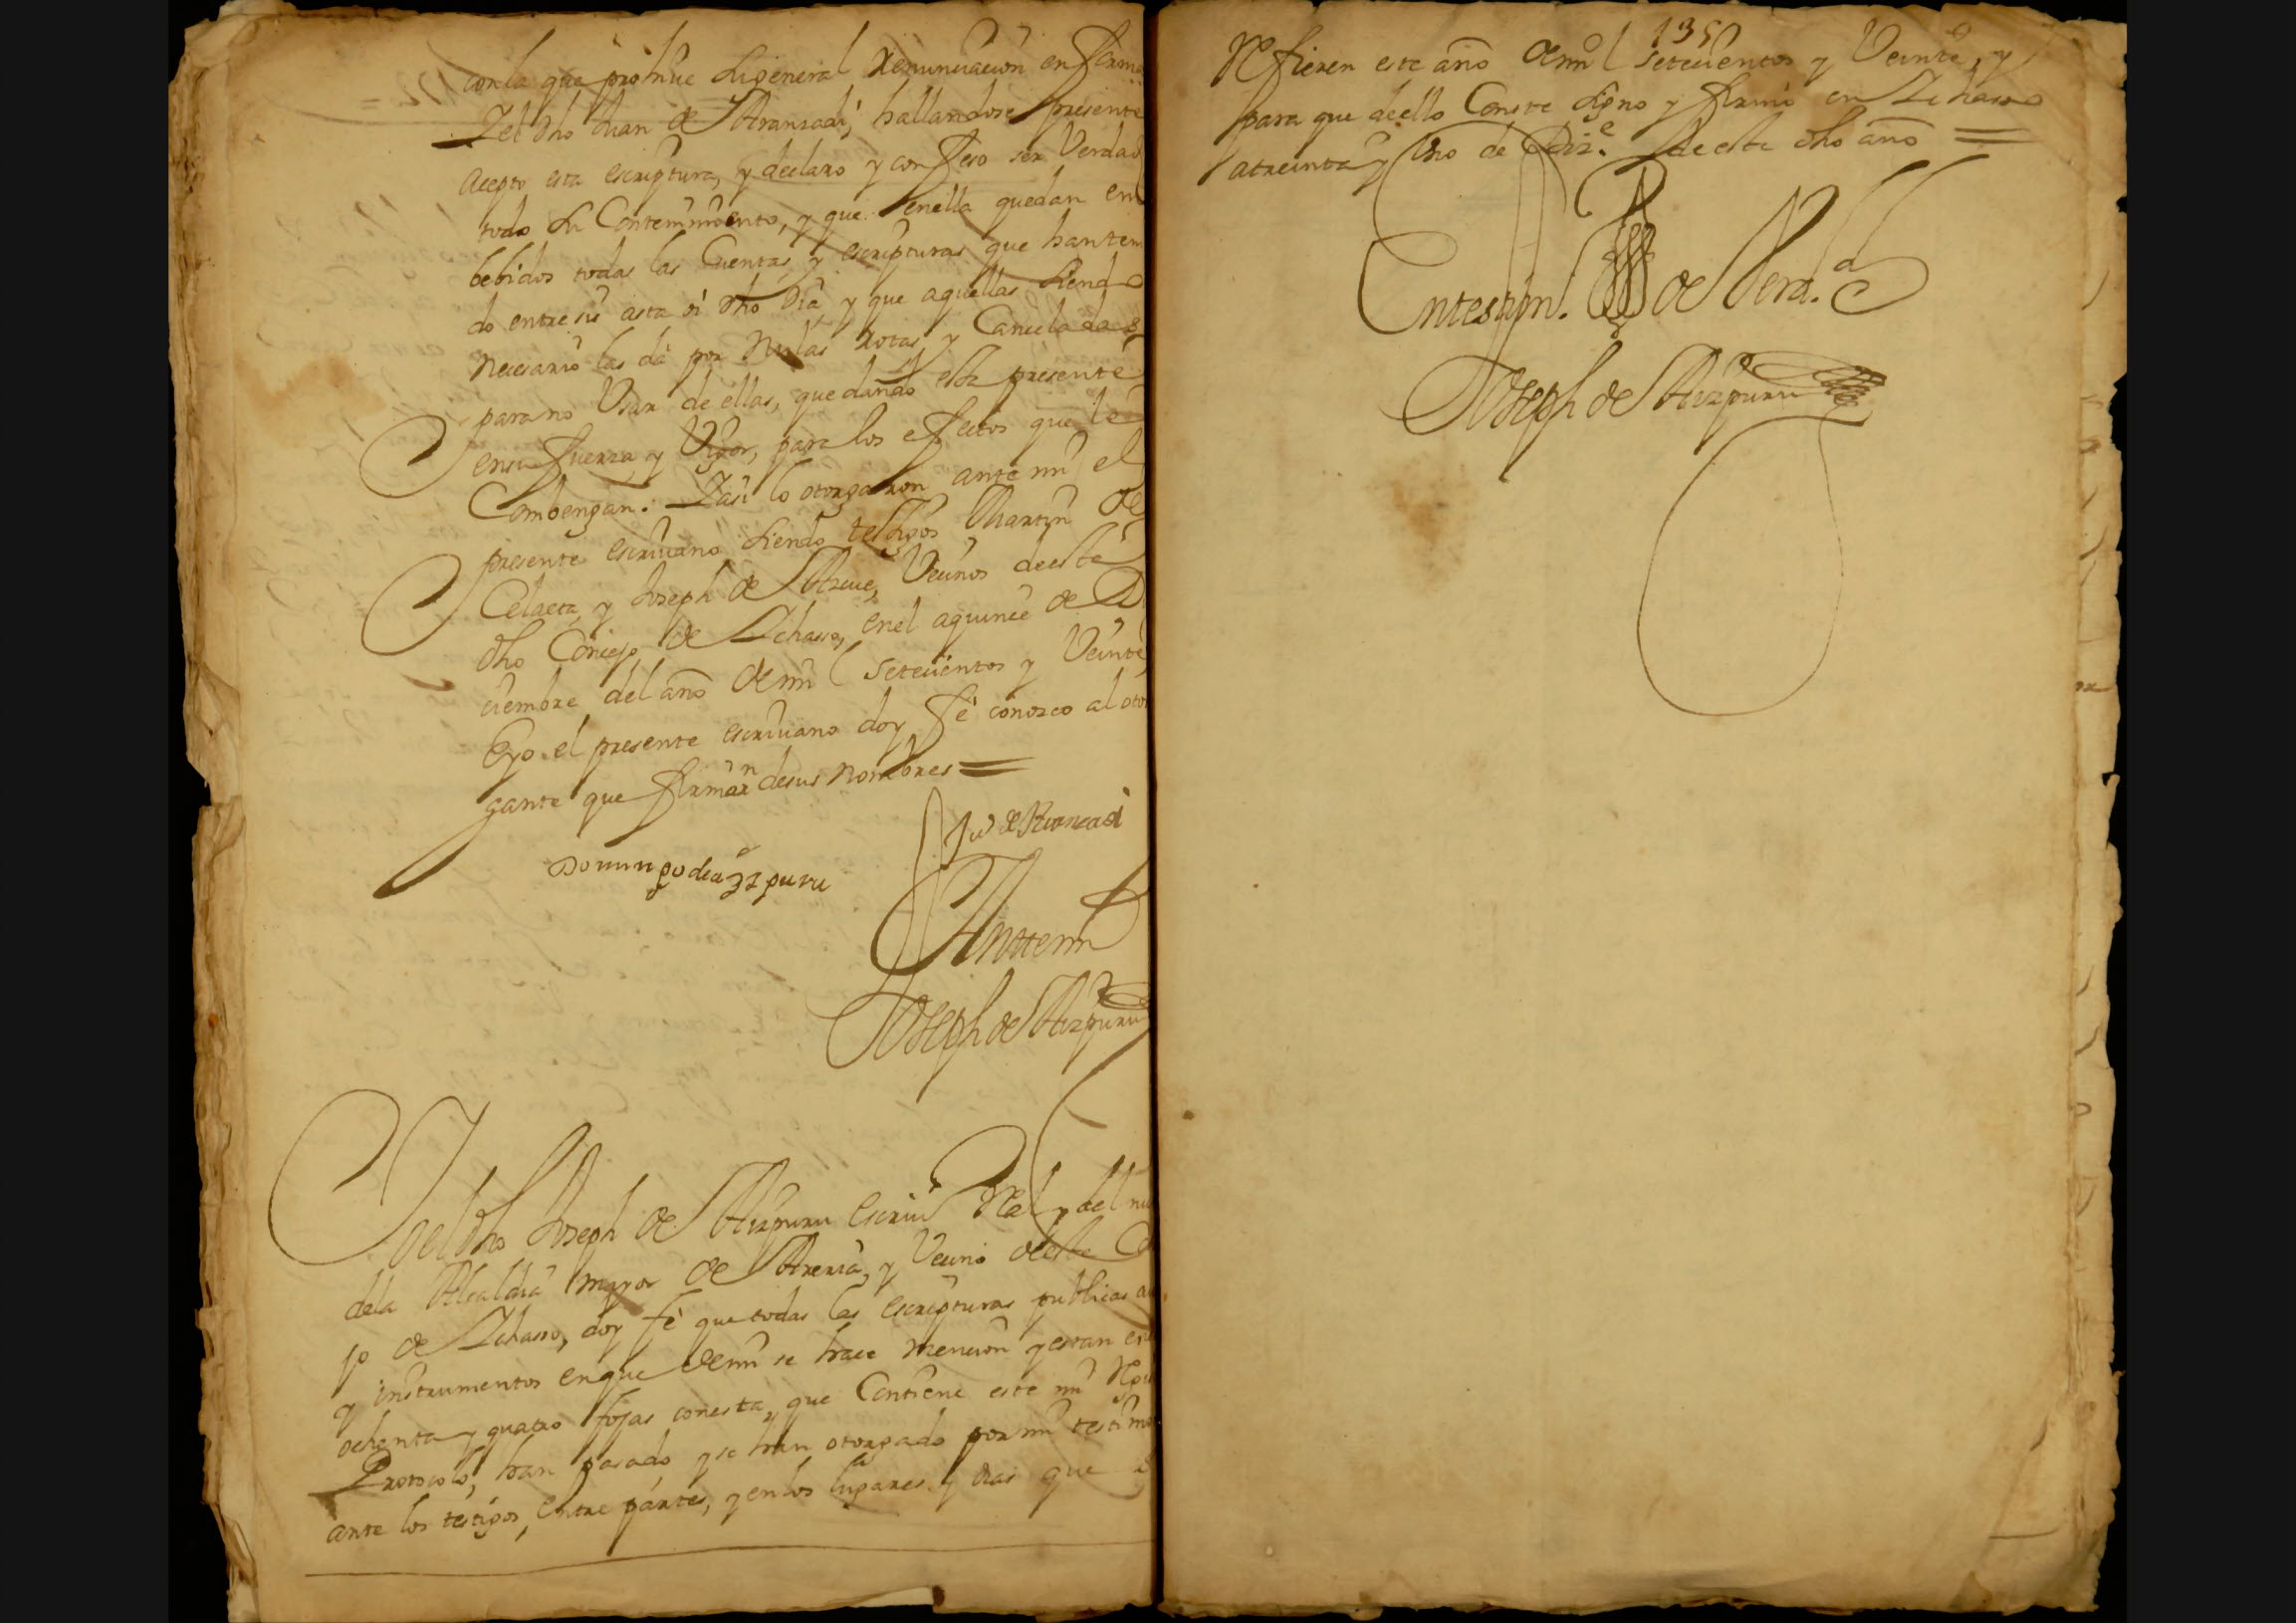 con la que prohive la general Renunciacion en forma
Y el dho Juan de Aranzadi, hallandose presente
acepto esta escriptura, y declaro y confeso ser Verdad
todo su Contenimiento, y que en ella quedan en
bebidos todas las Cuentas y escripturas que han teni
do entre si asta oi dho Dia y que aquellas siendo
necesario las dà por Nulas rotas y Canceladas
para no Usar de ellas, quedando esta presente
en su fuerza, y Vigor, para los efectos que le
Combengan. Y asi lo otorgaron ante mi el
presente escrivano siendo testigos Martin de
Celaeta, y Joseph de Azcue, Vecinos de este
dho Concejo de Ichasso, en el a quince de Di
ciembre del año de mil setecientos y Veinte,
E yo el presente escrivano doy fè conozco al otor
gante que firmaron de sus nombres =
Ju.º de Aranzadi
Domingo de aizpuru
Ante mi
Joseph de Aizpuru
Yo el dho Joseph de Aizpuru escriv.º Real y del nu
de la Alcaldia mayor de Areria, y Vecino de este Con
jo de Ichasso, doy fè que todas las escripturas publicas au
y instrumentos en que de mi se hace mencion y estan en
ochenta y quatro fojas con esta, que Contiene este mi Rex
Protocolo, han pasado y se han otorgado por mi testimo
ante los testigos, entre partes, y en los lugares y dias que se
135
Refieren este año de mil setecientos y Veinte, y
para que de ello Conste signo y firmo en Ichasso
a treinta y Uno de Diz.e de este dho año =
En testim.º de Verd.d
Joseph de Aizpuru